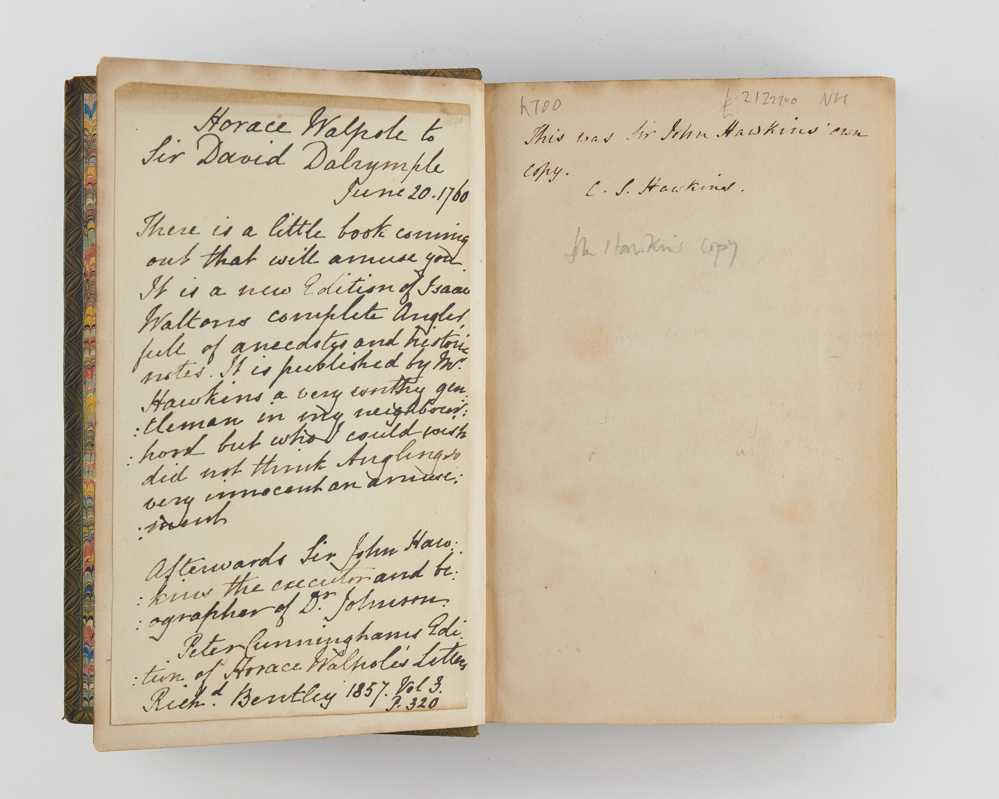 Horace Walpole to
Sir David Dalrymple
June 20. 1760
There is a little book coming
out that will amuse you.
It is a new Edition of Isaac
Waltons complete Angler,
full of anecdotes and historic
notes. It is published by Mr.
Hawkins a very worthy gen
:tleman in my neighbour:
:hood but who I could wish
did not think Angling so
very innocent an amuse:
:ment
Afterwards Sir John Haw:
:kins the executor and bi:
:ographer of Dr. Johnson.
Peter Cunninghams Edi:
:tion of Horace Walpole's Letters
Richd. Bentley 1857. Vol 3.
P. 320
This was Sir John Hawkins' own
copy.
C. S. Hawkins.
John Hawkins copy